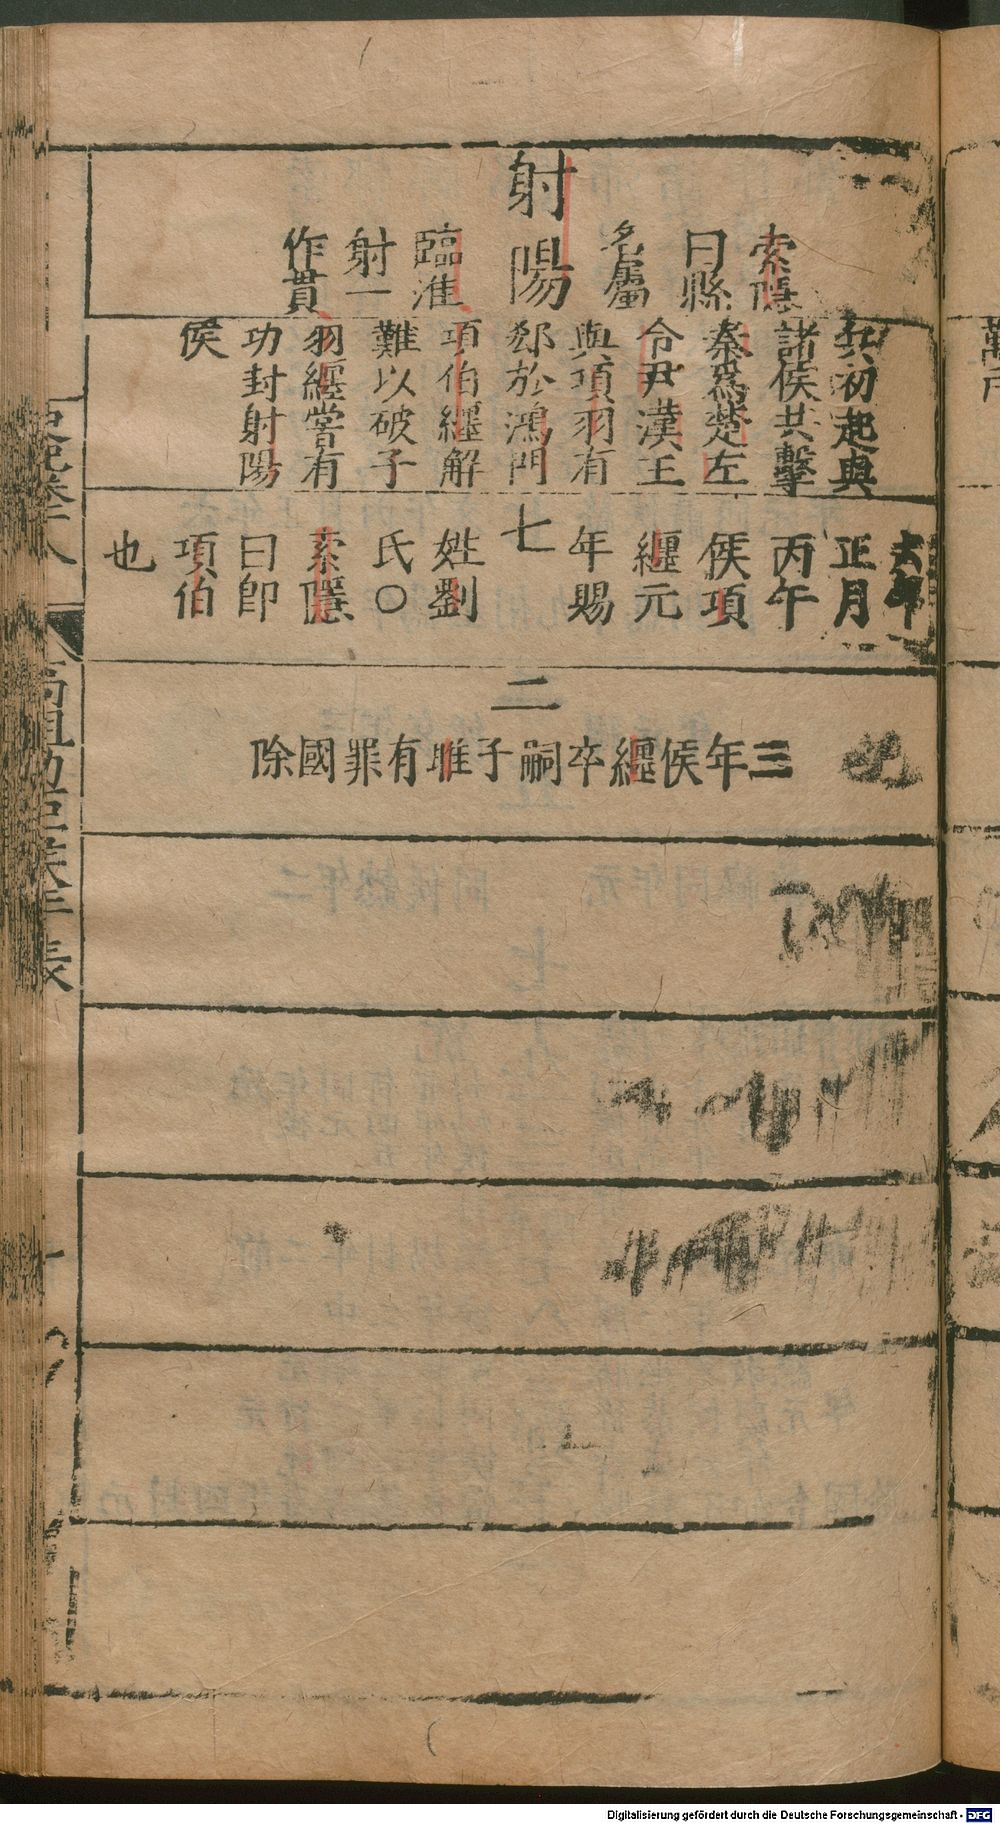 射陽
索隱
曰縣
名屬
臨淮
射一
作貫
兵初起與
諸侯共擊
秦爲楚左
令尹漢王
與項羽有
郄於鴻門
項伯纏解
難以破子
羽纏嘗有
功封射陽
侯
七
六年
正月
丙午
侯項
纏元
年賜
姓劉
氏○
索隱
曰即
項伯
也
二
三年侯纏卒嗣子睢有罪國除
Digitalisierung gefördert durch die Deutsche Forschungsgemeinschaft - DFG